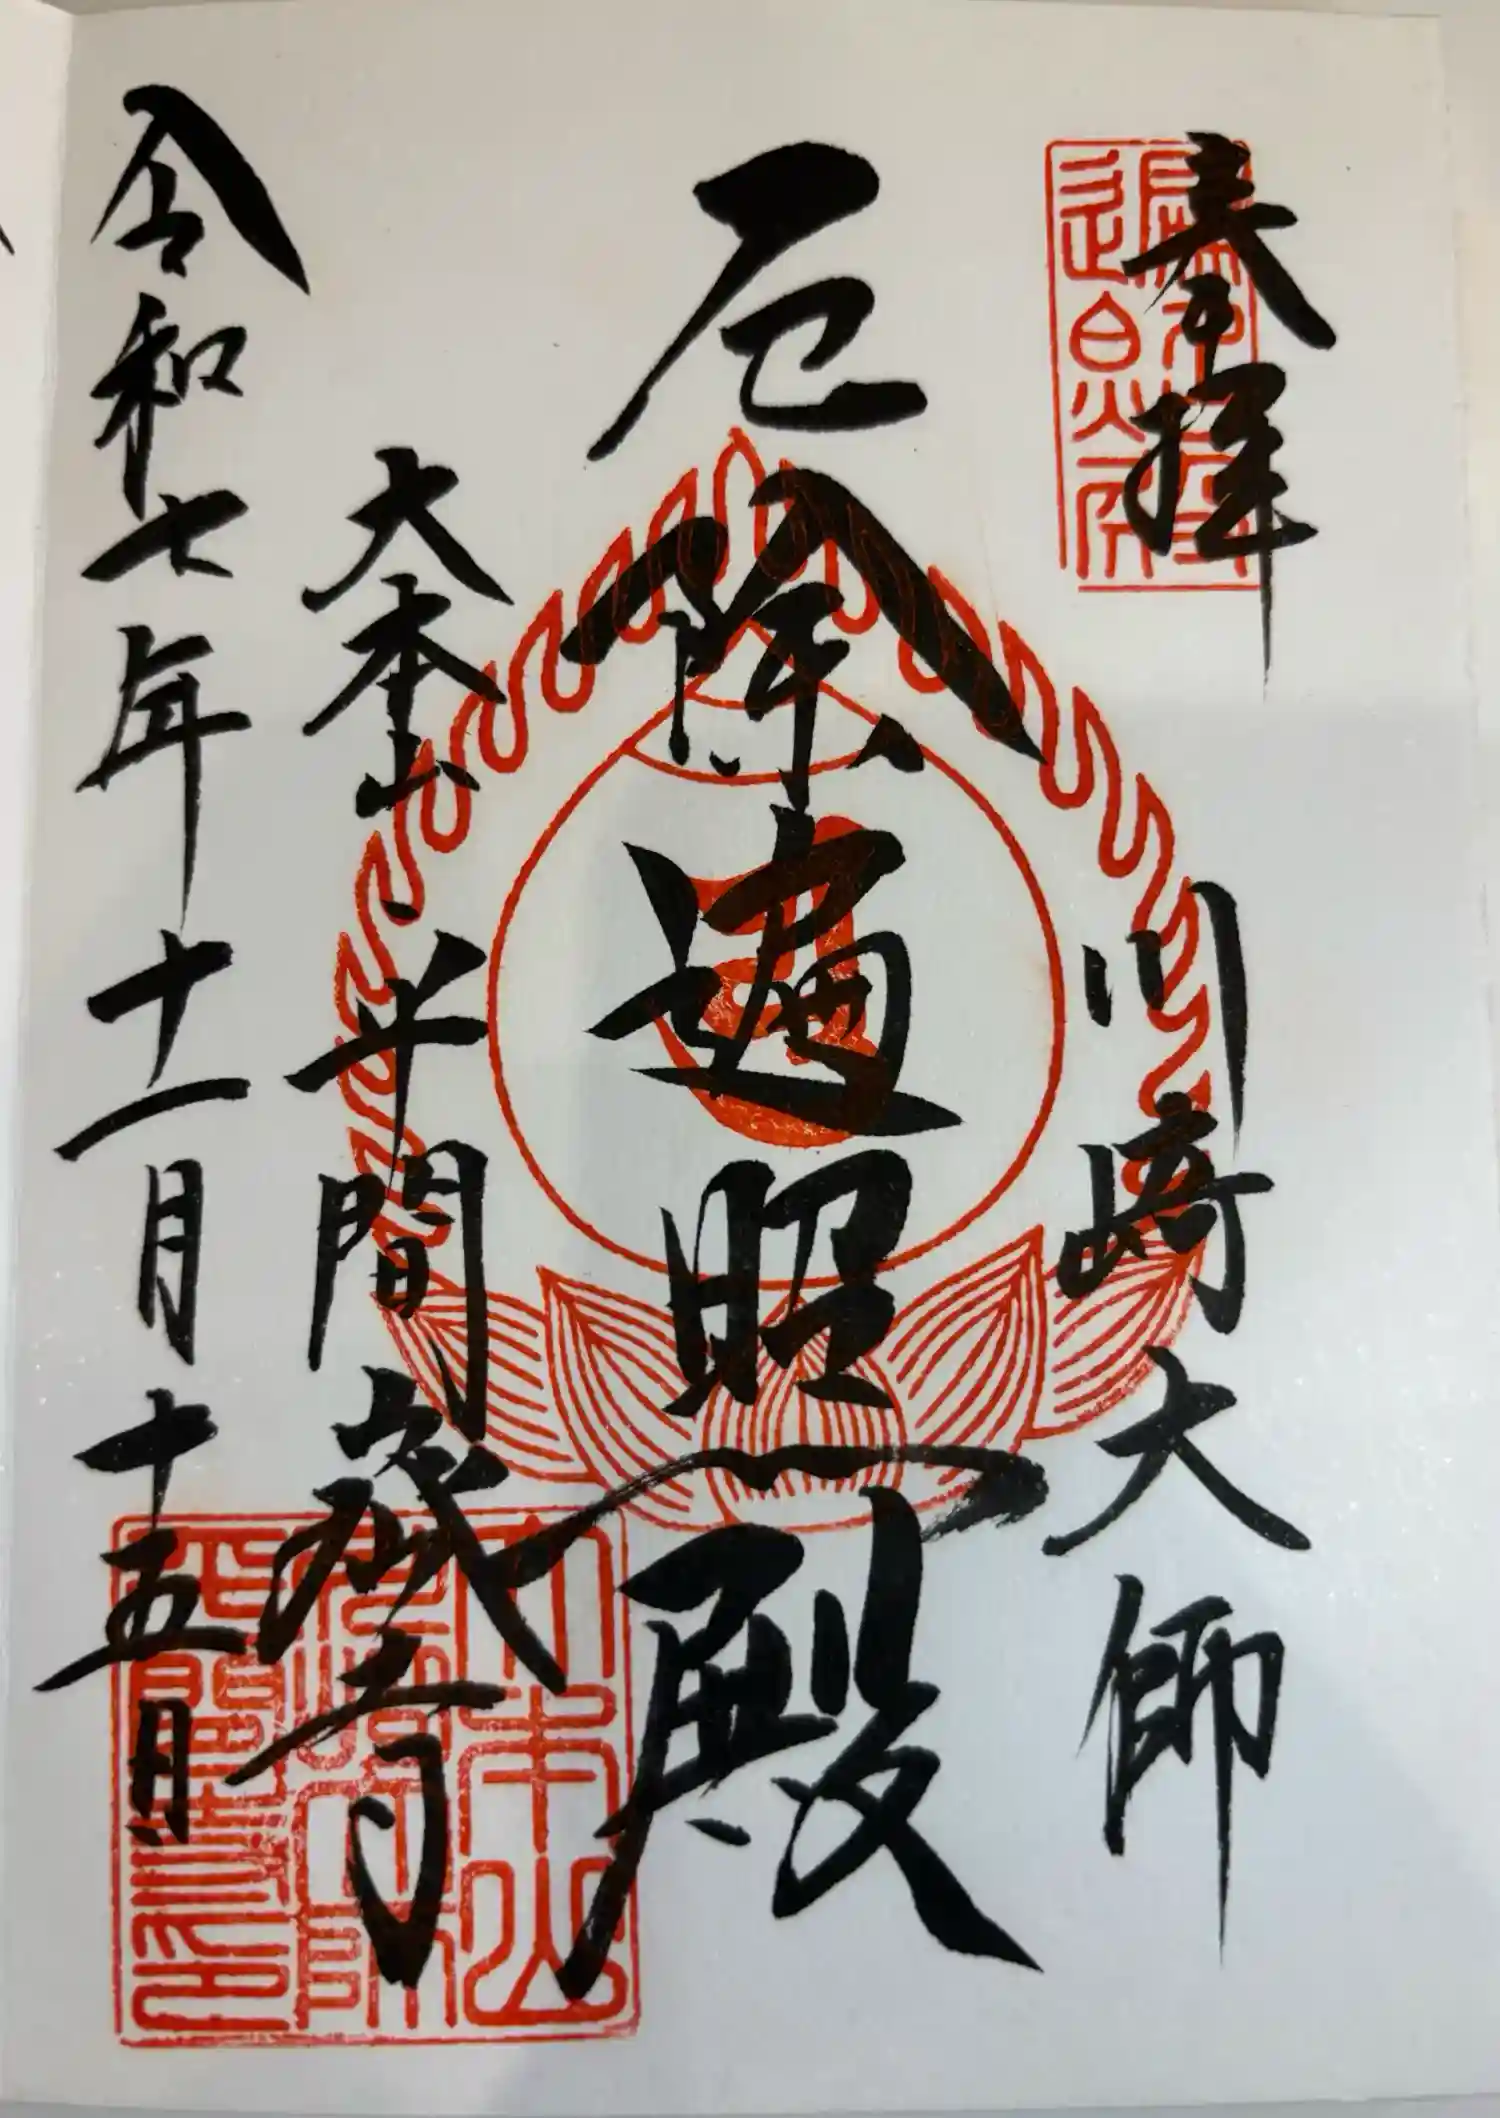 奉拝
川崎大師
厄除遍照殿
大本山
平間寺
令和七年十一月十五日